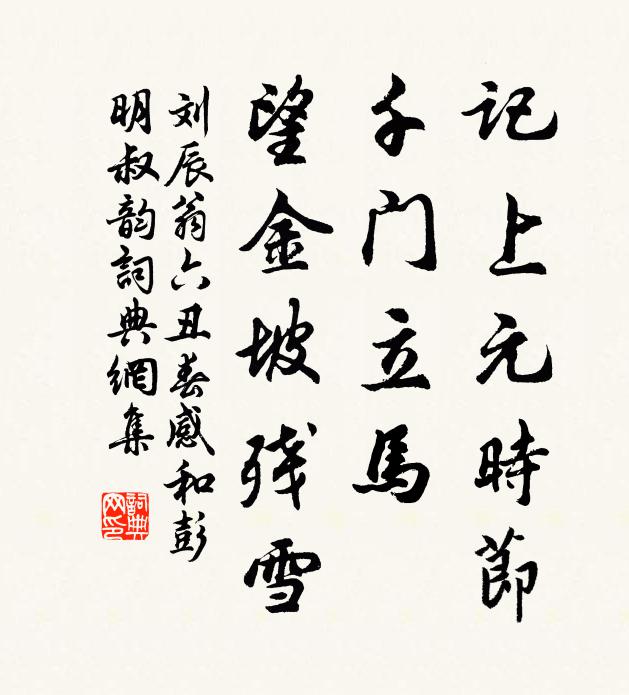 记上元時節
千门立馬
望金坡残雪
刘辰翁六丑春感和彭
明叔韵詞典網集
詞典网印